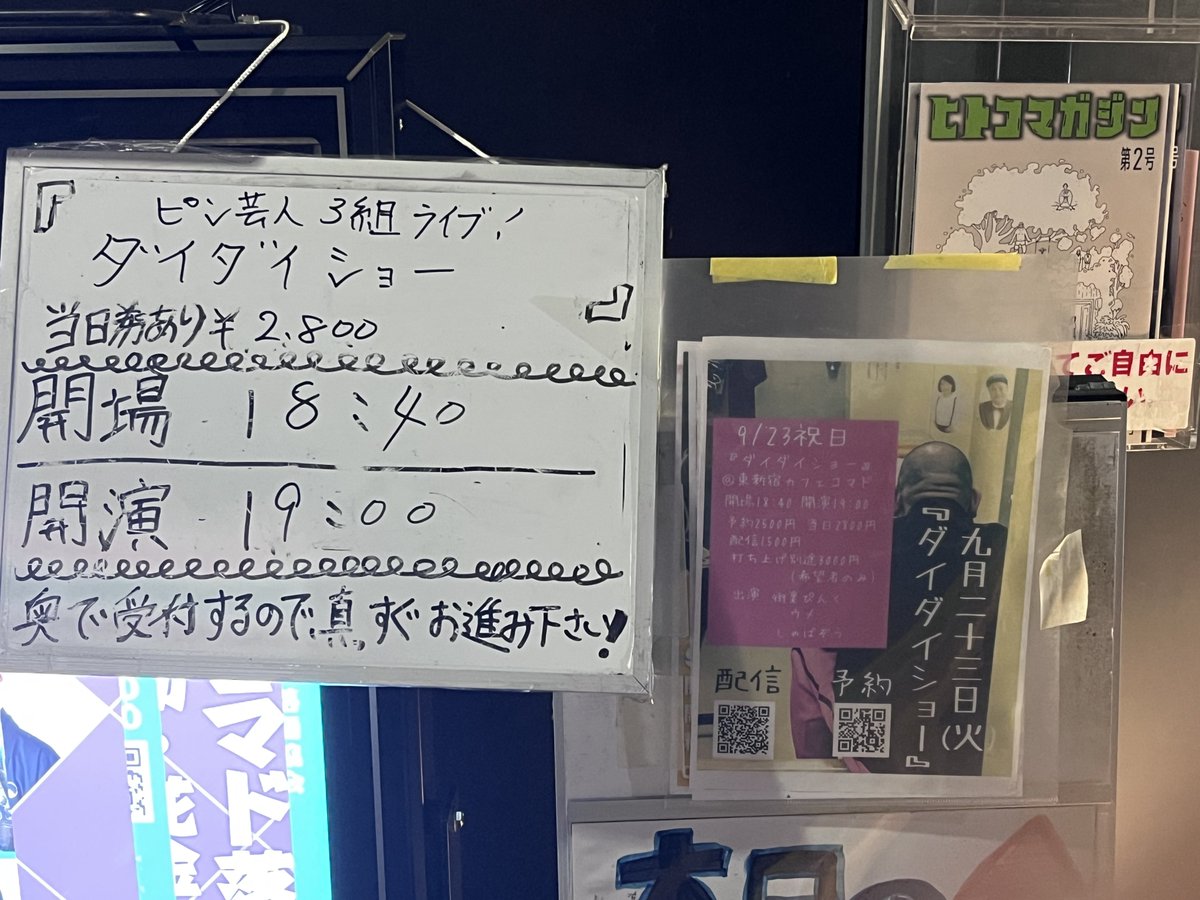 『ピン芸人3組ライブ!
ダイダイショー』
当日券あり¥2.800
開場 18:40
開演 19:00
奥で受付するので真すぐお進み下さい!
ヒトコマガジン
第2号
てご自由に
9/23祝日
『ダイダイショー』
@東新宿カフェコマド
開場18:40 開演19:00
予約2500円 当日2800円
配信1500円
打ち上げ別途3000円
(希望者のみ)
出演 街裏ぴんく
ウメ
しゅばぞう
九月二十三日(火)
『ダイダイショー』
配信
予約
本日
マド落